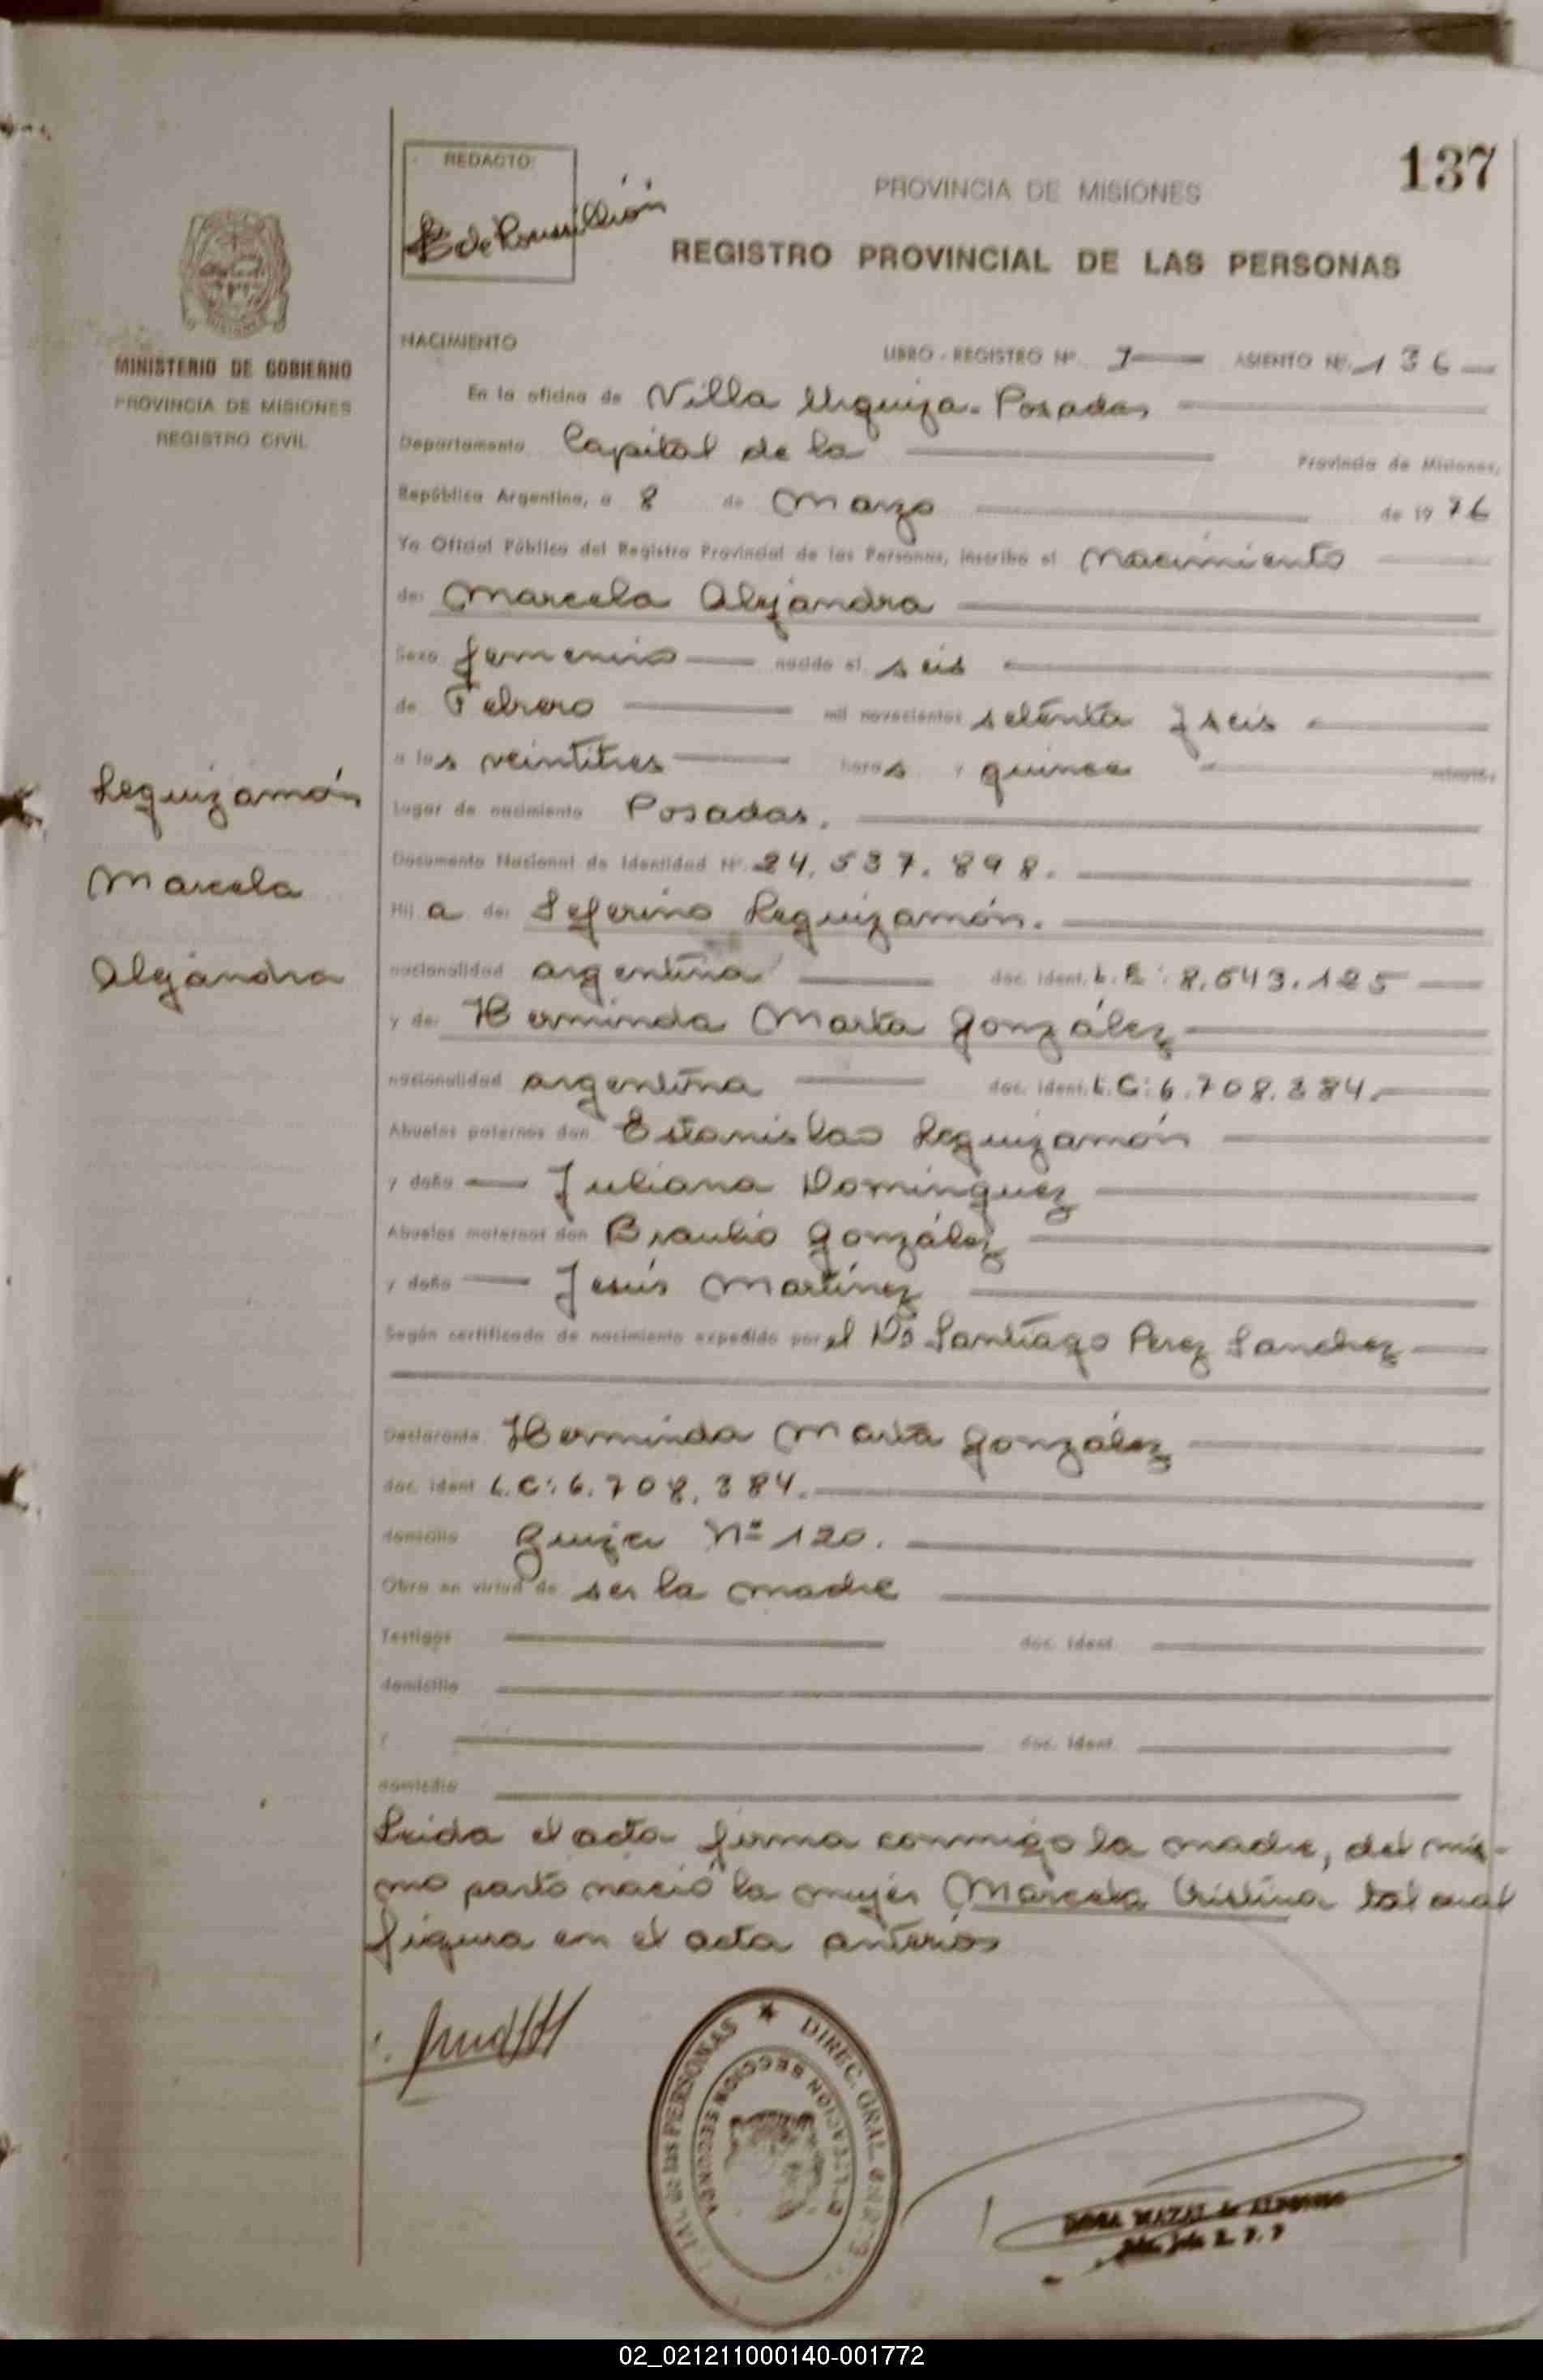 137
REDACTO:
PROVINCIA DE MISIONES
REGISTRO PROVINCIAL DE LAS PERSONAS
MINISTERIO DE GOBIERNO
PROVINCIA DE MISIONES
REGISTRO CIVIL
NACIMIENTO LIBRO - REGISTRO Nº ASIENTO Nº 136
En la oficina de Villa Urquiza - Posadas
Departamento Capital de la Provincia de Misiones,
República Argentina, a 8 de Marzo de 1976
Yo Oficial Público del Registro Provincial de las Personas, inscribo el Nacimiento
de: Marcela Alejandra
Sexo femenino nacido el seis
de Febrero mil novecientos setenta y seis
a las veintitres horas y quince minutos
Lugar de nacimiento Posadas.
Documento Nacional de Identidad Nº 24.537.898.
Hij a de: Seferino Leguizamón.
nacionalidad argentina doc. ident. L.E: 8.543.125
y de: Herminda Marta González
nacionalidad argentina doc. ident. L.C: 6.708.384.
Abuelos paternos don Estanislao Leguizamón
y doña Juliana Domínguez
Abuelos maternos don Braulio González
y doña Jesús Martínez
Según certificado de nacimiento expedido por el Dr Santiago Perez Sanchez
Leguizamón
Marcela
Alejandra
Declarante Herminda Marta González
doc. ident L.C: 6.708.384.
domicilio Nº 120.
Obra en virtud de ser la madre
Testigos doc. ident.
domicilio
y doc. ident.
domicilio
Leida el acta firma conmigo la madre, del mis-
mo parto nació la mujer Marcela Cristina tal cual
figura en el acta anterior
DIREC. GRAL. de las PERSONAS
DELEGACION SECCION SEGUNDA
02_021211000140-001772